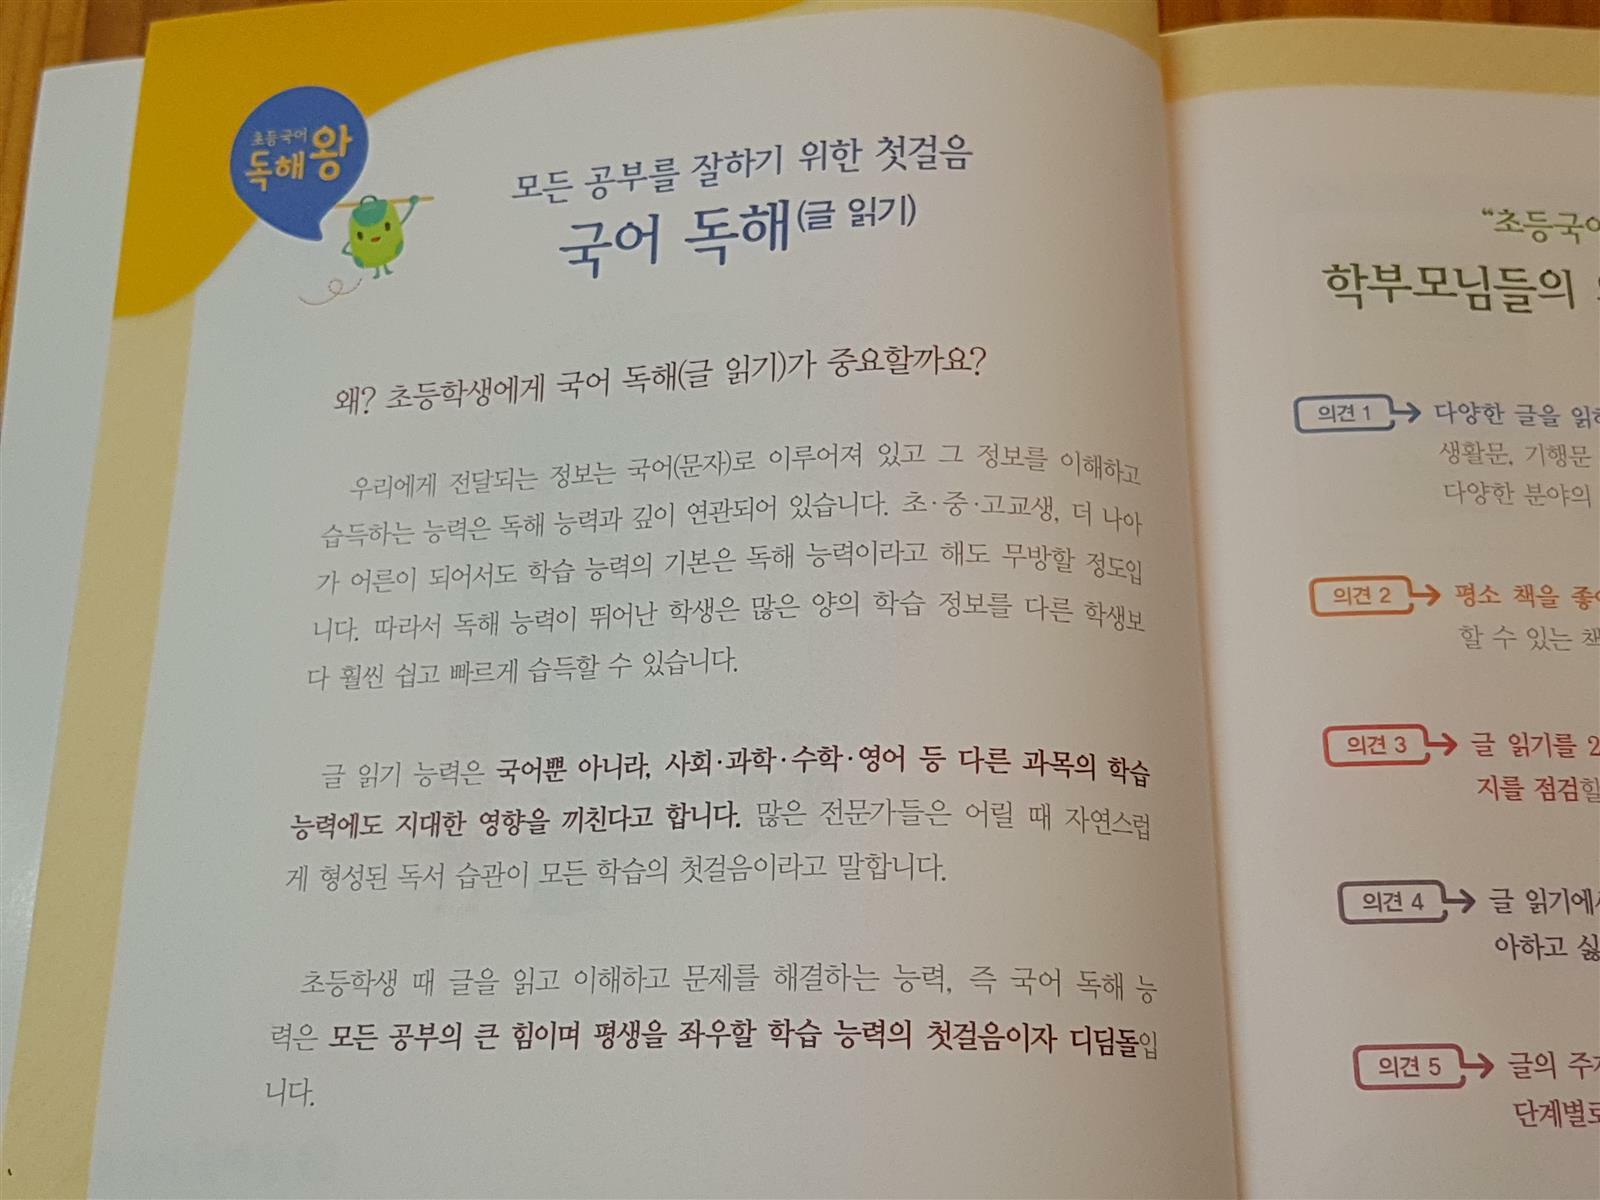 초등국어
독해왕
모든 공부를 잘하기 위한 첫걸음
국어 독해(글 읽기)
왜? 초등학생에게 국어 독해(글 읽기)가 중요할까요?
우리에게 전달되는 정보는 국어(문자)로 이루어져 있고 그 정보를 이해하고
습득하는 능력은 독해 능력과 깊이 연관되어 있습니다. 초·중·고교생, 더 나아
가 어른이 되어서도 학습 능력의 기본은 독해 능력이라고 해도 무방할 정도입
니다. 따라서 독해 능력이 뛰어난 학생은 많은 양의 학습 정보를 다른 학생보
다 훨씬 쉽고 빠르게 습득할 수 있습니다.
글 읽기 능력은 국어뿐 아니라, 사회·과학·수학·영어 등 다른 과목의 학습
능력에도 지대한 영향을 끼친다고 합니다. 많은 전문가들은 어릴 때 자연스럽
게 형성된 독서 습관이 모든 학습의 첫걸음이라고 말합니다.
초등학생 때 글을 읽고 이해하고 문제를 해결하는 능력, 즉 국어 독해 능
력은 모든 공부의 큰 힘이며 평생을 좌우할 학습 능력의 첫걸음이자 디딤돌입
니다.
“초등국어
학부모님들의
의견 1 다양한 글을
생활문, 기행문
다양한 분야의
의견 2 평소 책을
할 수 있는 책
의견 3 글 읽기를 2
지를 점검할
의견 4 글 읽기에서
아하고
의견 5 글의
단계별로